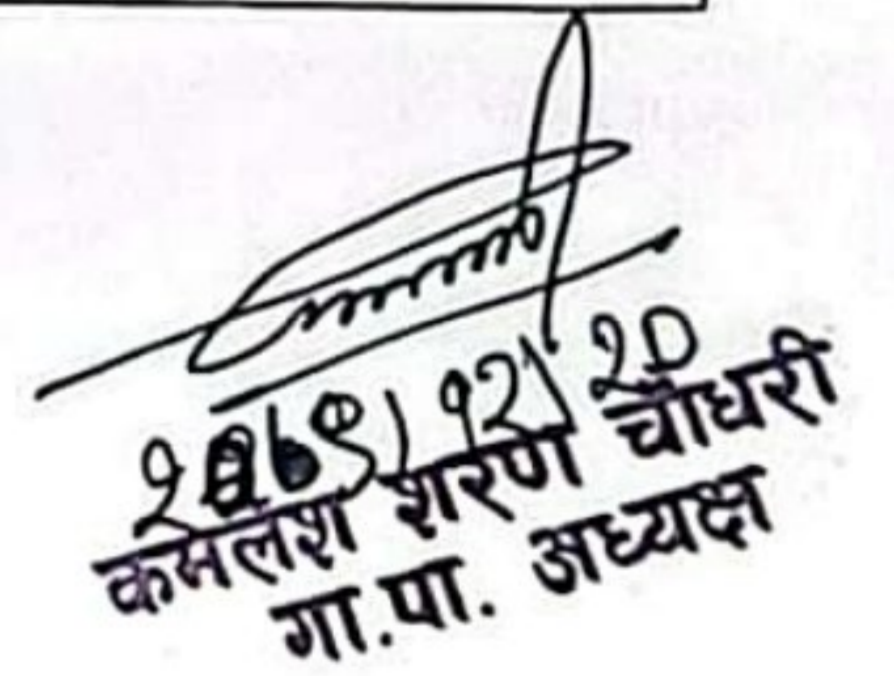 १२। २०
कमलेश शरण चौधरी
गा.पा. अध्यक्ष